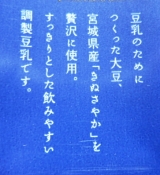 豆乳のために
つくった大豆、
宮城県産「きぬさやか」を
贅沢に使用。
すっきりとした飲みやすい
調製豆乳です。